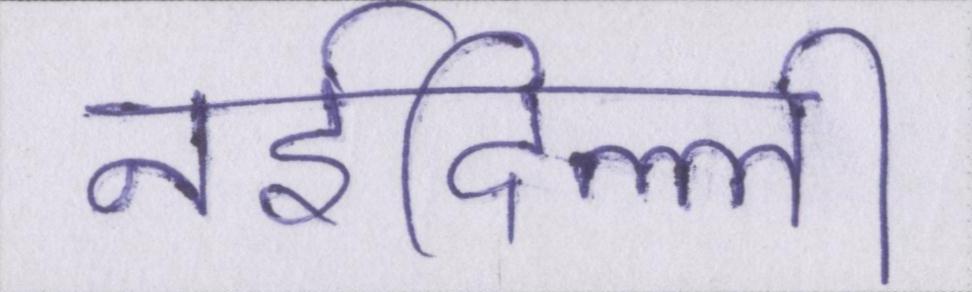 नईदिल्ली